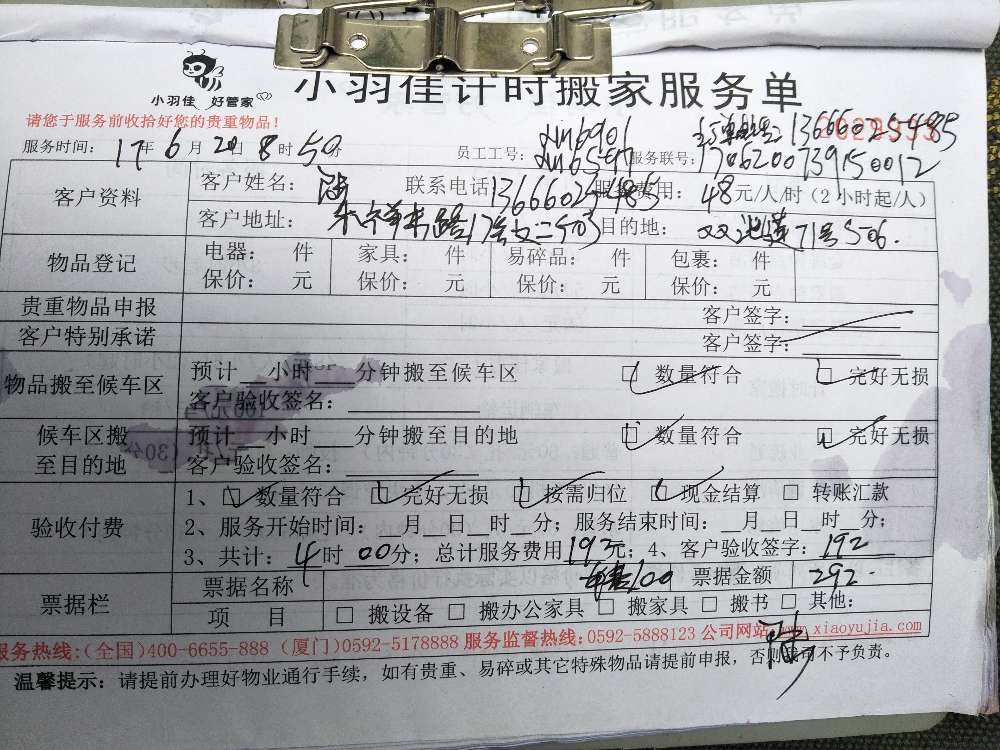 小羽佳 好管家
小羽佳计时搬家服务单
请您于服务前收拾好您的贵重物品！
服务时间：17年6月20日8时50分 员工工号： 服务联号：1706200739150012
客户资料
客户姓名：陈 联系电话13666025485 服务费用：48元/人/时（2小时起/人）
客户地址： 目的地：
物品登记
电器： 件 家具： 件 易碎品： 件 包裹： 件
保价： 元 保价： 元 保价： 元 保价： 元
贵重物品申报 客户签字：
客户特别承诺 客户签字：
物品搬至候车区
预计__小时___分钟搬至候车区 □ 数量符合 □ 完好无损
客户验收签名：
候车区搬至目的地
预计__小时___分钟搬至目的地 □ 数量符合 □ 完好无损
客户验收签名：
验收付费
1、□ 数量符合 □ 完好无损 □ 按需归位 □ 现金结算 □ 转账汇款
2、服务开始时间：__月__日__时__分；服务结束时间：__月__日__时__分；
3、共计：4时00分；总计服务费用192元；4、客户验收签字：192
票据栏
票据名称 100 票据金额 292.
项 目 □ 搬设备 □ 搬办公家具 □ 搬家具 □ 搬书 □ 其他：
服务热线:(全国)400-6655-888 (厦门)0592-5178888 服务监督热线:0592-5888123 公司网站 www.xiaoyujia.com
温馨提示：请提前办理好物业通行手续，如有贵重、易碎或其它特殊物品请提前申报，否则 不予负责。